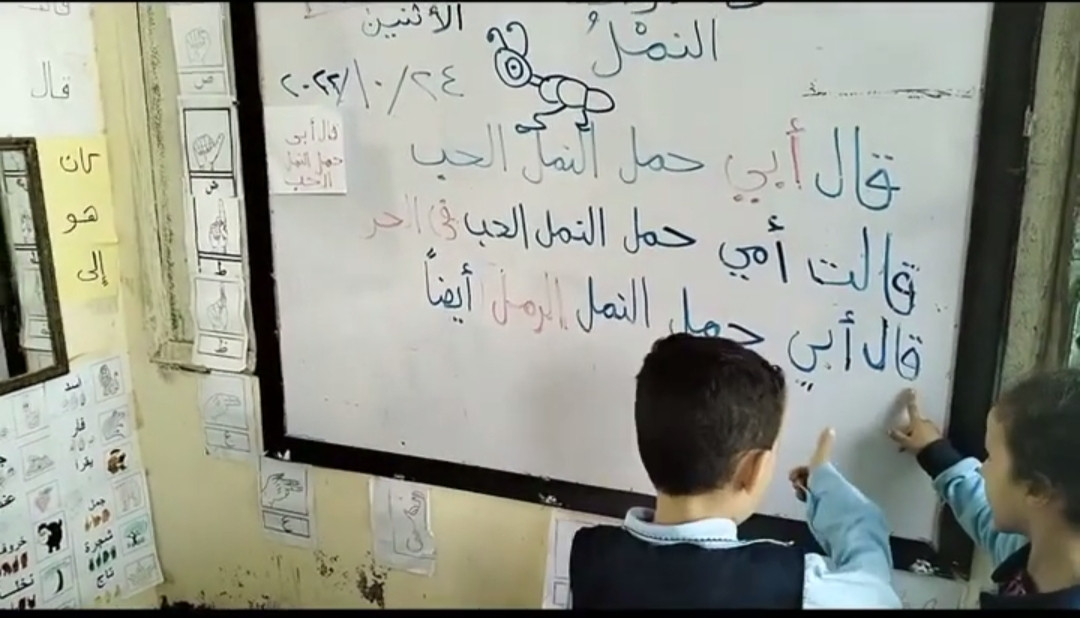 الأثنين
النمْلُ
٢٠٢٢/١٠/٢٤
قال أبي حمل النمل الحب
قالت أمي حمل النمل الحب في الحر
قال أبي حمل النمل الرمل أيضاً
قال أبي
حمل النمل
الحب
قال
كان
هو
إلى
ص
ض
ط
ظ
ع
غ
أسد
فأر
جمل
شجرة
تاج
خروف